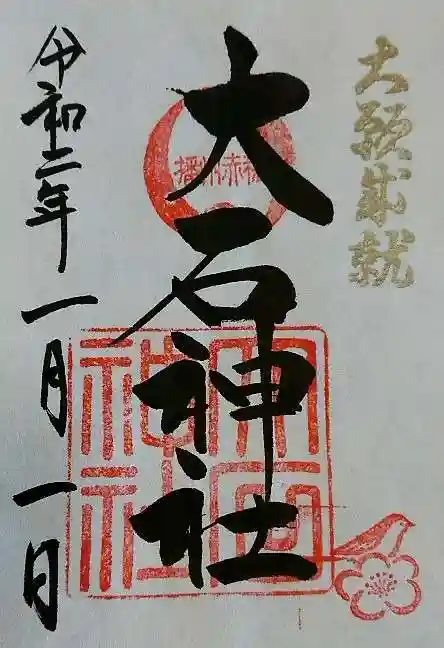 大願成就
大石神社
播州赤穂
大石
神社
令和二年一月一日